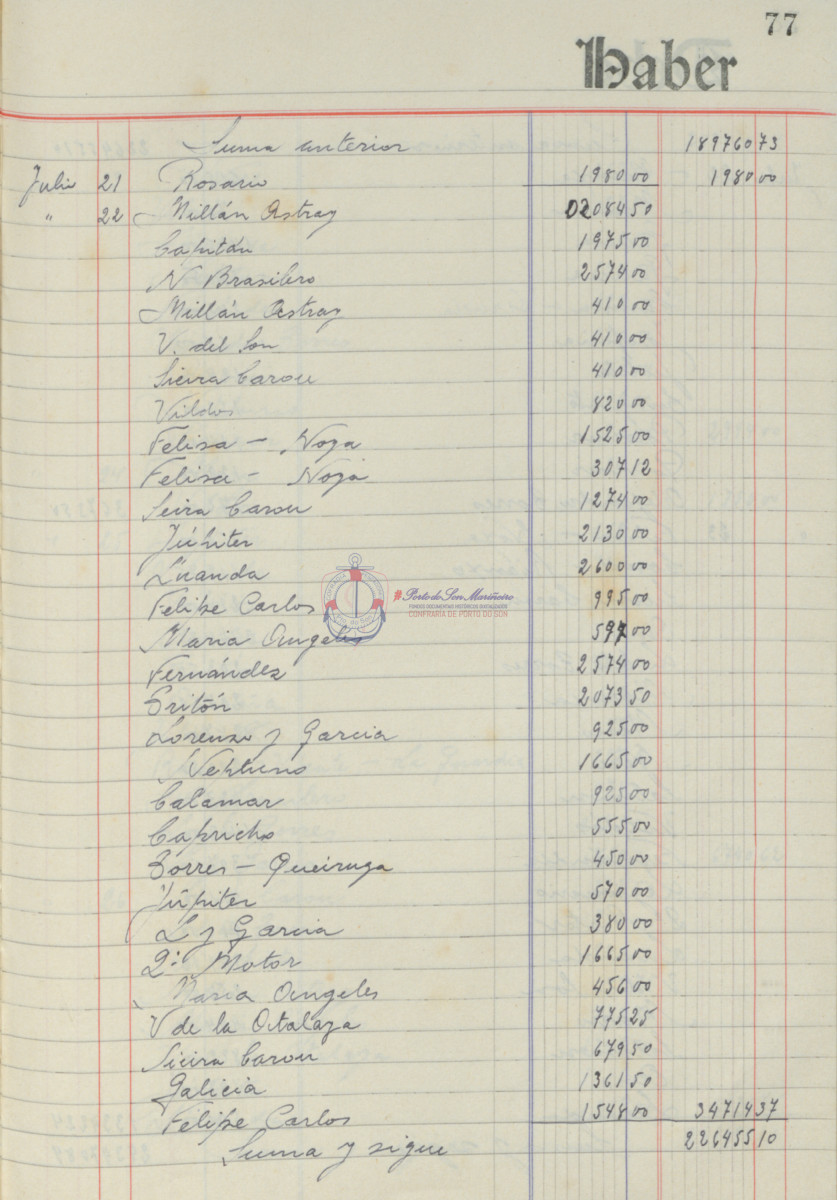 77
Haber
Suma anterior 189760 73
Julio 21 Rosario 1980 00 1980 00
" 22 Millán Astray 2084 50
Capitán 1975 00
N Brasilero 2574 00
Millán Astray 410 00
V. del Son 410 00
Sieira Carou 410 00
Vildos 820 00
Felisa - Noya 1525 00
Felisa - Noya 307 12
Seira Carou 1274 00
Júpiter 2130 00
Luanda 2600 00
Felipe Carlos 995 00
Maria Angeles 597 00
Fernández 2574 00
Tritón 2073 50
Lorenzo y Garcia 925 00
Neptuno 1665 00
Calamar 925 00
Capricho 555 00
Torres - Queiruga 450 00
Júpiter 570 00
L y Garcia 380 00
2º Motor 1665 00
Maria Angeles 456 00
V de la Atalaya 775 25
Sieira Carou 679 50
Galicia 1361 50
Felipe Carlos 1548 00 34714 37
Suma y sigue 226455 10
COFRADÍA
#Porto do Son Mariñeiro
FONDOS DOCUMENTAIS HISTÓRICOS DIXITALIZADOS
CONFRARÍA DE PORTO DO SON